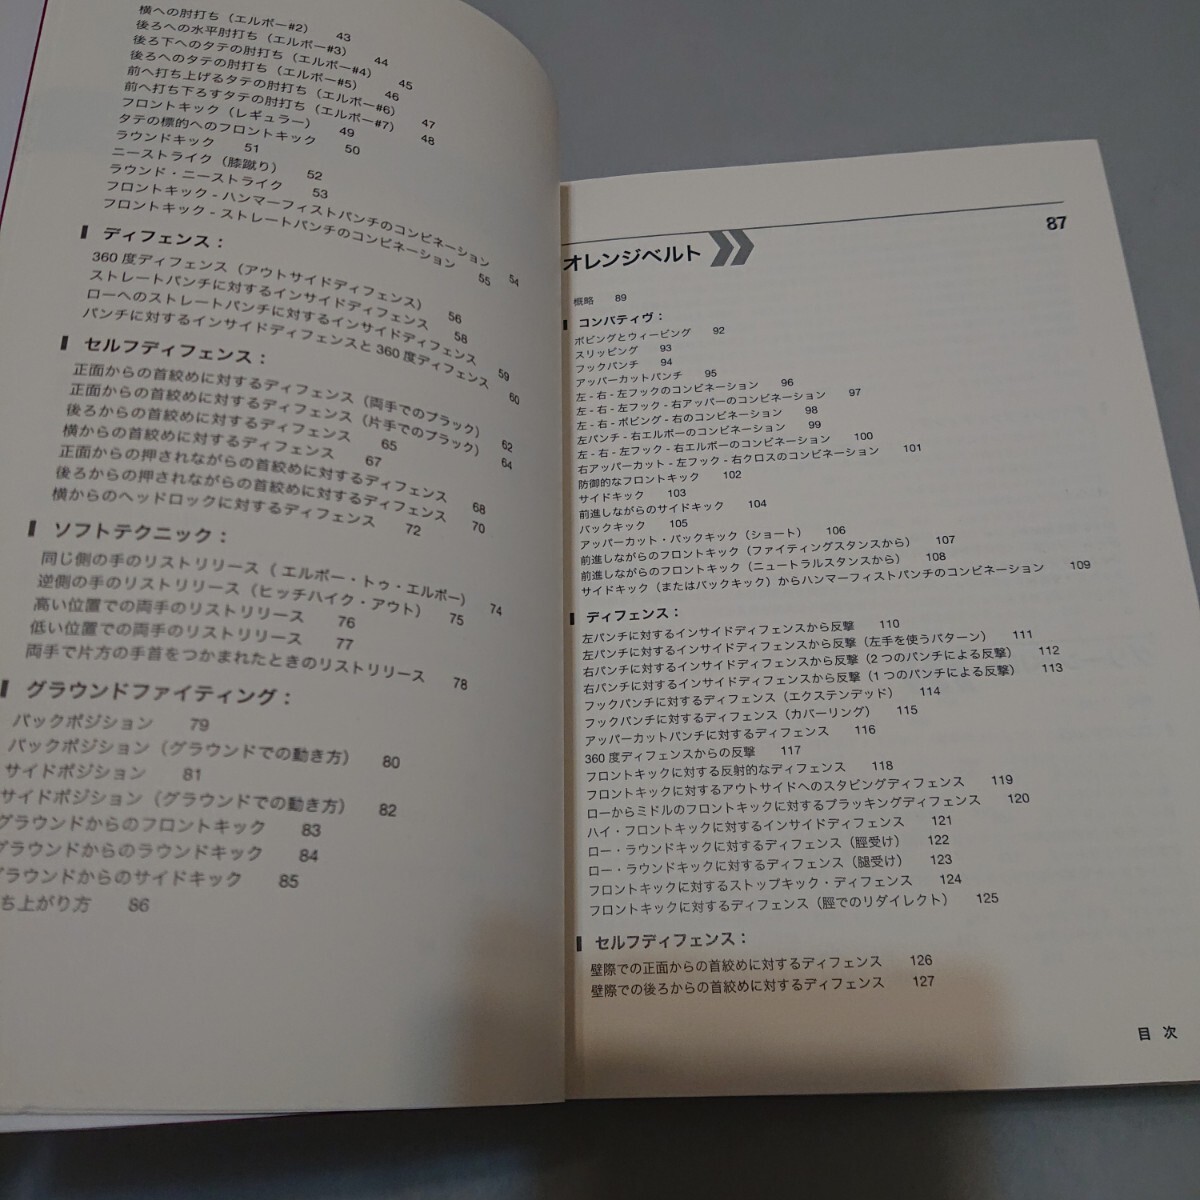 横への肘打ち（エルボー#2） 43
後ろへの水平肘打ち（エルボー#3） 44
後ろ下へのタテの肘打ち（エルボー#4） 45
後ろへのタテの肘打ち（エルボー#5） 46
前へ打ち上げるタテの肘打ち（エルボー#6） 47
前へ打ち下ろすタテの肘打ち（エルボー#7） 48
フロントキック（レギュラー） 49
タテの標的へのフロントキック 50
ラウンドキック 51
ニーストライク（膝蹴り） 52
ラウンド・ニーストライク 53
フロントキック - ハンマーフィストパンチのコンビネーション 54
フロントキック - ストレートパンチのコンビネーション 55
ディフェンス：
360度ディフェンス（アウトサイドディフェンス） 56
ストレートパンチに対するインサイドディフェンス 58
ローへのストレートパンチに対するインサイドディフェンス 59
パンチに対するインサイドディフェンスと360度ディフェンス 60
セルフディフェンス：
正面からの首絞めに対するディフェンス（両手でのプラック） 62
正面からの首絞めに対するディフェンス（片手でのプラック） 64
後ろからの首絞めに対するディフェンス 65
横からの首絞めに対するディフェンス 67
正面からの押されながらの首絞めに対するディフェンス 68
後ろからの押されながらの首絞めに対するディフェンス 70
横からのヘッドロックに対するディフェンス 72
ソフトテクニック：
同じ側の手のリストリリース（エルボー・トゥ・エルボー） 74
逆側の手のリストリリース（ヒッチハイク・アウト） 75
高い位置での両手のリストリリース 76
低い位置での両手のリストリリース 77
両手で片方の手首をつかまれたときのリストリリース 78
グラウンドファイティング：
バックポジション 79
バックポジション（グラウンドでの動き方） 80
サイドポジション 81
サイドポジション（グラウンドでの動き方） 82
グラウンドからのフロントキック 83
グラウンドからのラウンドキック 84
グラウンドからのサイドキック 85
ち上がり方 86
オレンジベルト 87
概略 89
コンバティヴ：
ボビングとウィービング 92
スリッピング 93
フックパンチ 94
アッパーカットパンチ 95
左 - 右 - 左フックのコンビネーション 96
左 - 右 - 左フック - 右アッパーのコンビネーション 97
左 - 右 - ボビング - 右のコンビネーション 98
左パンチ - 右エルボーのコンビネーション 99
左 - 右 - 左フック - 右エルボーのコンビネーション 100
右アッパーカット - 左フック - 右クロスのコンビネーション 101
防御的なフロントキック 102
サイドキック 103
前進しながらのサイドキック 104
バックキック 105
アッパーカット・バックキック（ショート） 106
前進しながらのフロントキック（ファイティングスタンスから） 107
前進しながらのフロントキック（ニュートラルスタンスから） 108
サイドキック（またはバックキック）からハンマーフィストパンチのコンビネーション 109
ディフェンス：
左パンチに対するインサイドディフェンスから反撃 110
左パンチに対するインサイドディフェンスから反撃（左手を使うパターン） 111
右パンチに対するインサイドディフェンスから反撃（2つのパンチによる反撃） 112
右パンチに対するインサイドディフェンスから反撃（1つのパンチによる反撃） 113
フックパンチに対するディフェンス（エクステンデッド） 114
フックパンチに対するディフェンス（カバーリング） 115
アッパーカットパンチに対するディフェンス 116
360度ディフェンスからの反撃 117
フロントキックに対する反射的なディフェンス 118
フロントキックに対するアウトサイドへのスタビングディフェンス 119
ローからミドルのフロントキックに対するプラッキングディフェンス 120
ハイ・フロントキックに対するインサイドディフェンス 121
ロー・ラウンドキックに対するディフェンス（脛受け） 122
ロー・ラウンドキックに対するディフェンス（腿受け） 123
フロントキックに対するストップキック・ディフェンス 124
フロントキックに対するディフェンス（脛でのリダイレクト） 125
セルフディフェンス：
壁際での正面からの首絞めに対するディフェンス 126
壁際での後ろからの首絞めに対するディフェンス 127
目 次